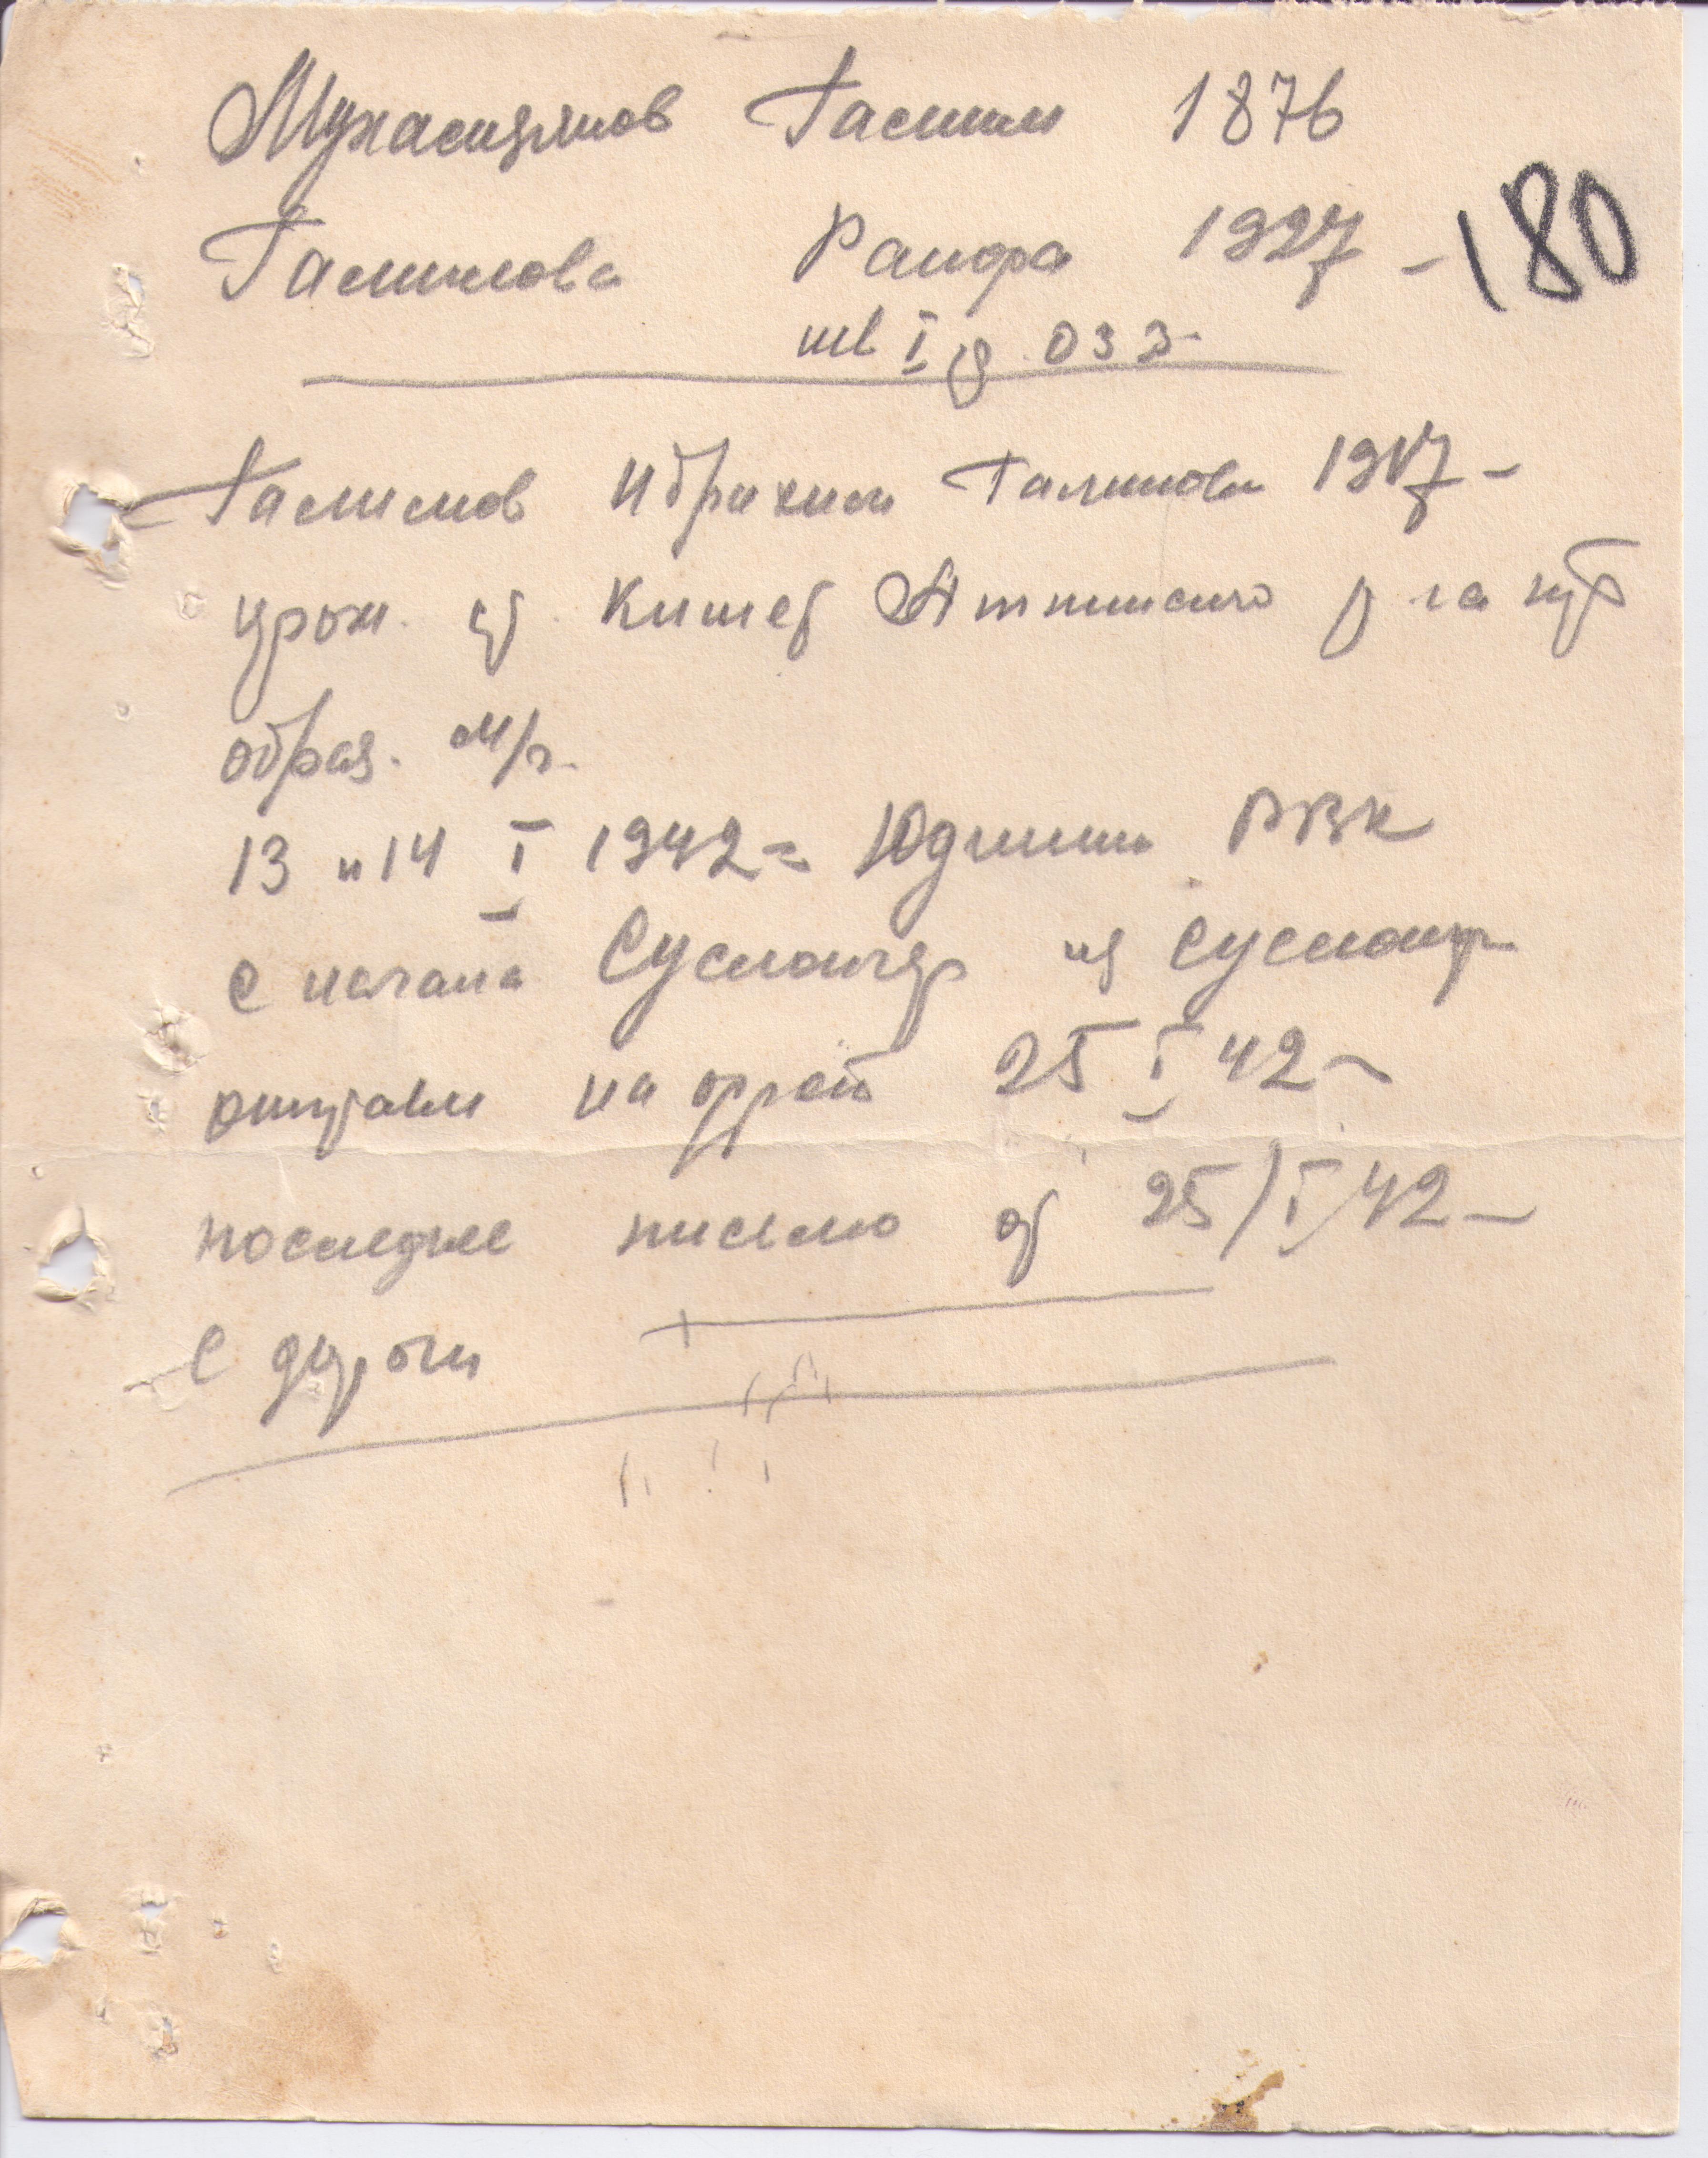 Мухасизянов Галим 1876
Галимова Раифа 1927 - 180
шв I д. 033
Галимов Ибрахим Галимов 1917 -
урож. д. Кишет Атнинского р-на
образ. м/г.
13 и 14 I 1942 = Юдинский РВК
с начала Суслонгер из Суслонгер
отправлен на фронт 25 I 42 -
последнее письмо от 25/I/42 -
с дороги